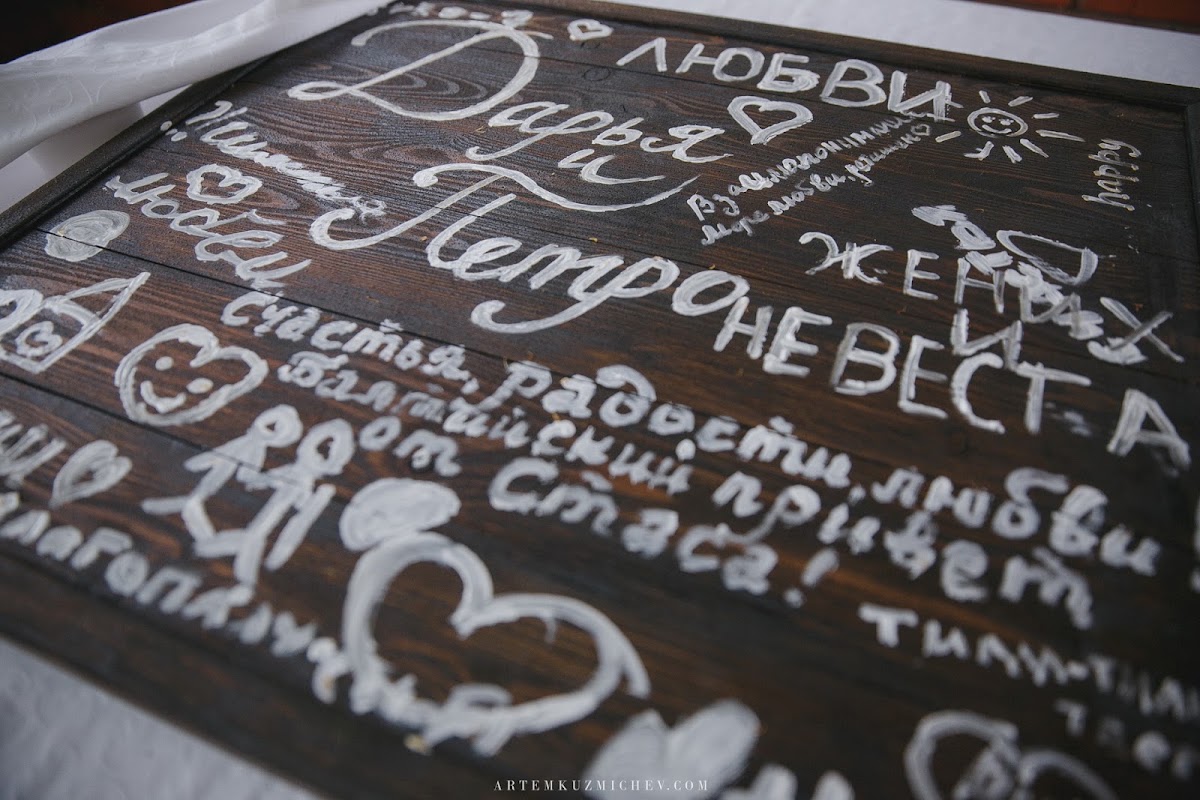 Дарья
и
Петр
ЛЮБВИ
happy
Взаимопонимания
море любви,
ЖЕНИХ
И
НЕВЕСТА
любви
счастья, радости, любви
Балтийский привет
от Стаса!
Благополучия
тили-тили
ARTEMKUZMICHEV.COM